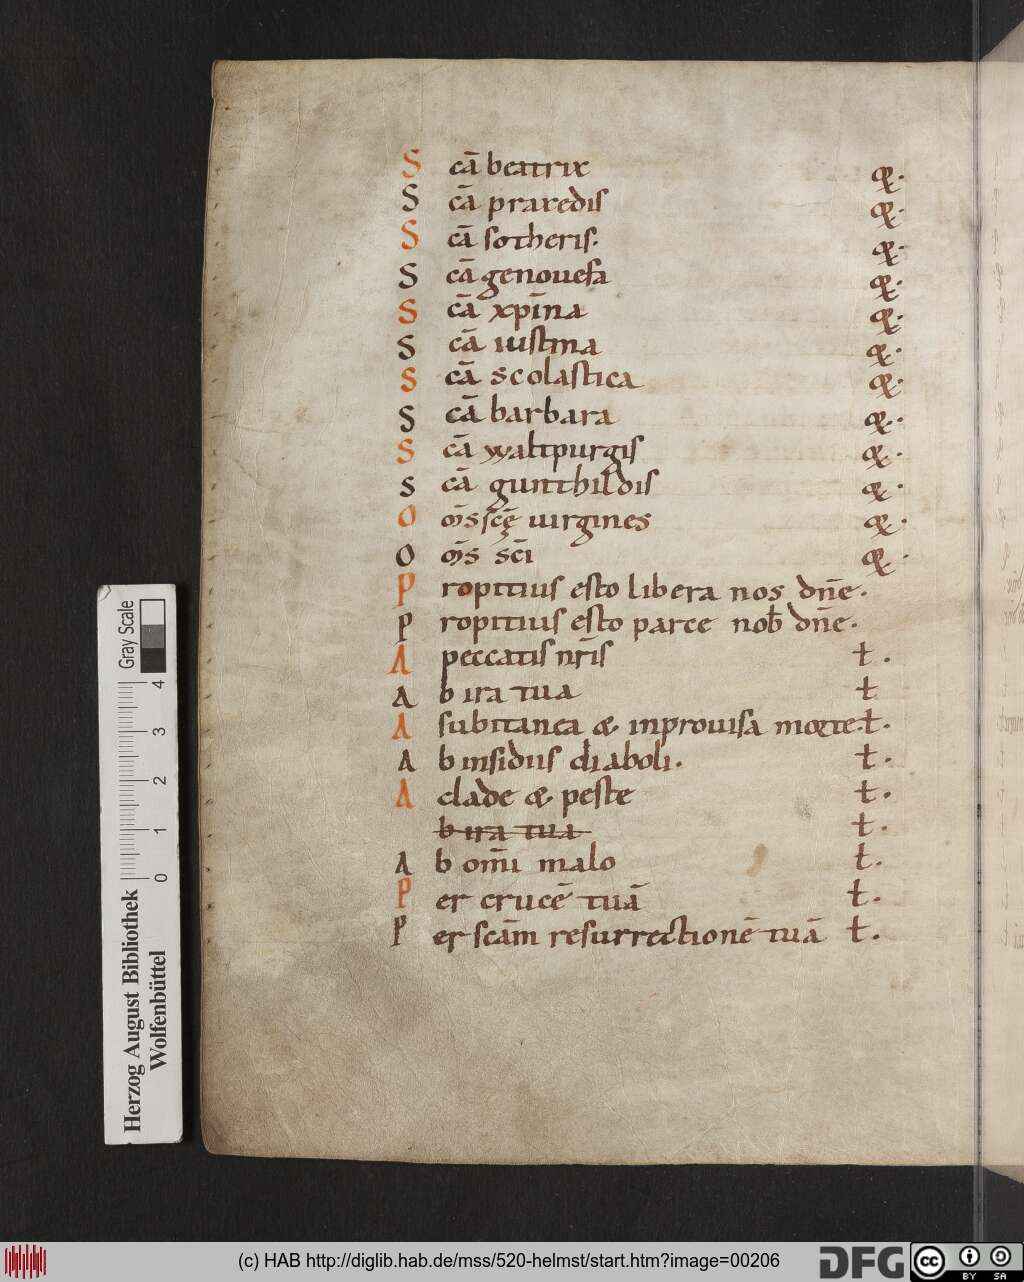 S cā beatrix q̄.
S cā praxedis q̄.
S cā sotheris. q̄.
S cā genouefa q̄.
S cā xpīna q̄.
S cā iustina q̄.
S cā scolastica q̄.
S cā barbara q̄.
S cā waltpurgis q̄.
S cā gunthildis q̄.
O m̄s sc̄ę uirgines q̄.
O m̄s sc̄i q̄.
P ropitius esto libera nos dn̄e.
P ropitius esto parce nob̄ dn̄e.
A peccatis nr̄is t.
A b ira tua t
A subitanea & inprouisa morte. t.
A b insidiis diaboli. t.
A clade & peste t.
b ira tua t.
A b om̄i malo t.
P er crucē tuā t.
P er scām resurrectionē tuā t.
Gray Scale
4 3 2 1 0
Herzog August Bibliothek
Wolfenbüttel
(c) HAB http://diglib.hab.de/mss/520-helmst/start.htm?image=00206
DFG
cc BY SA